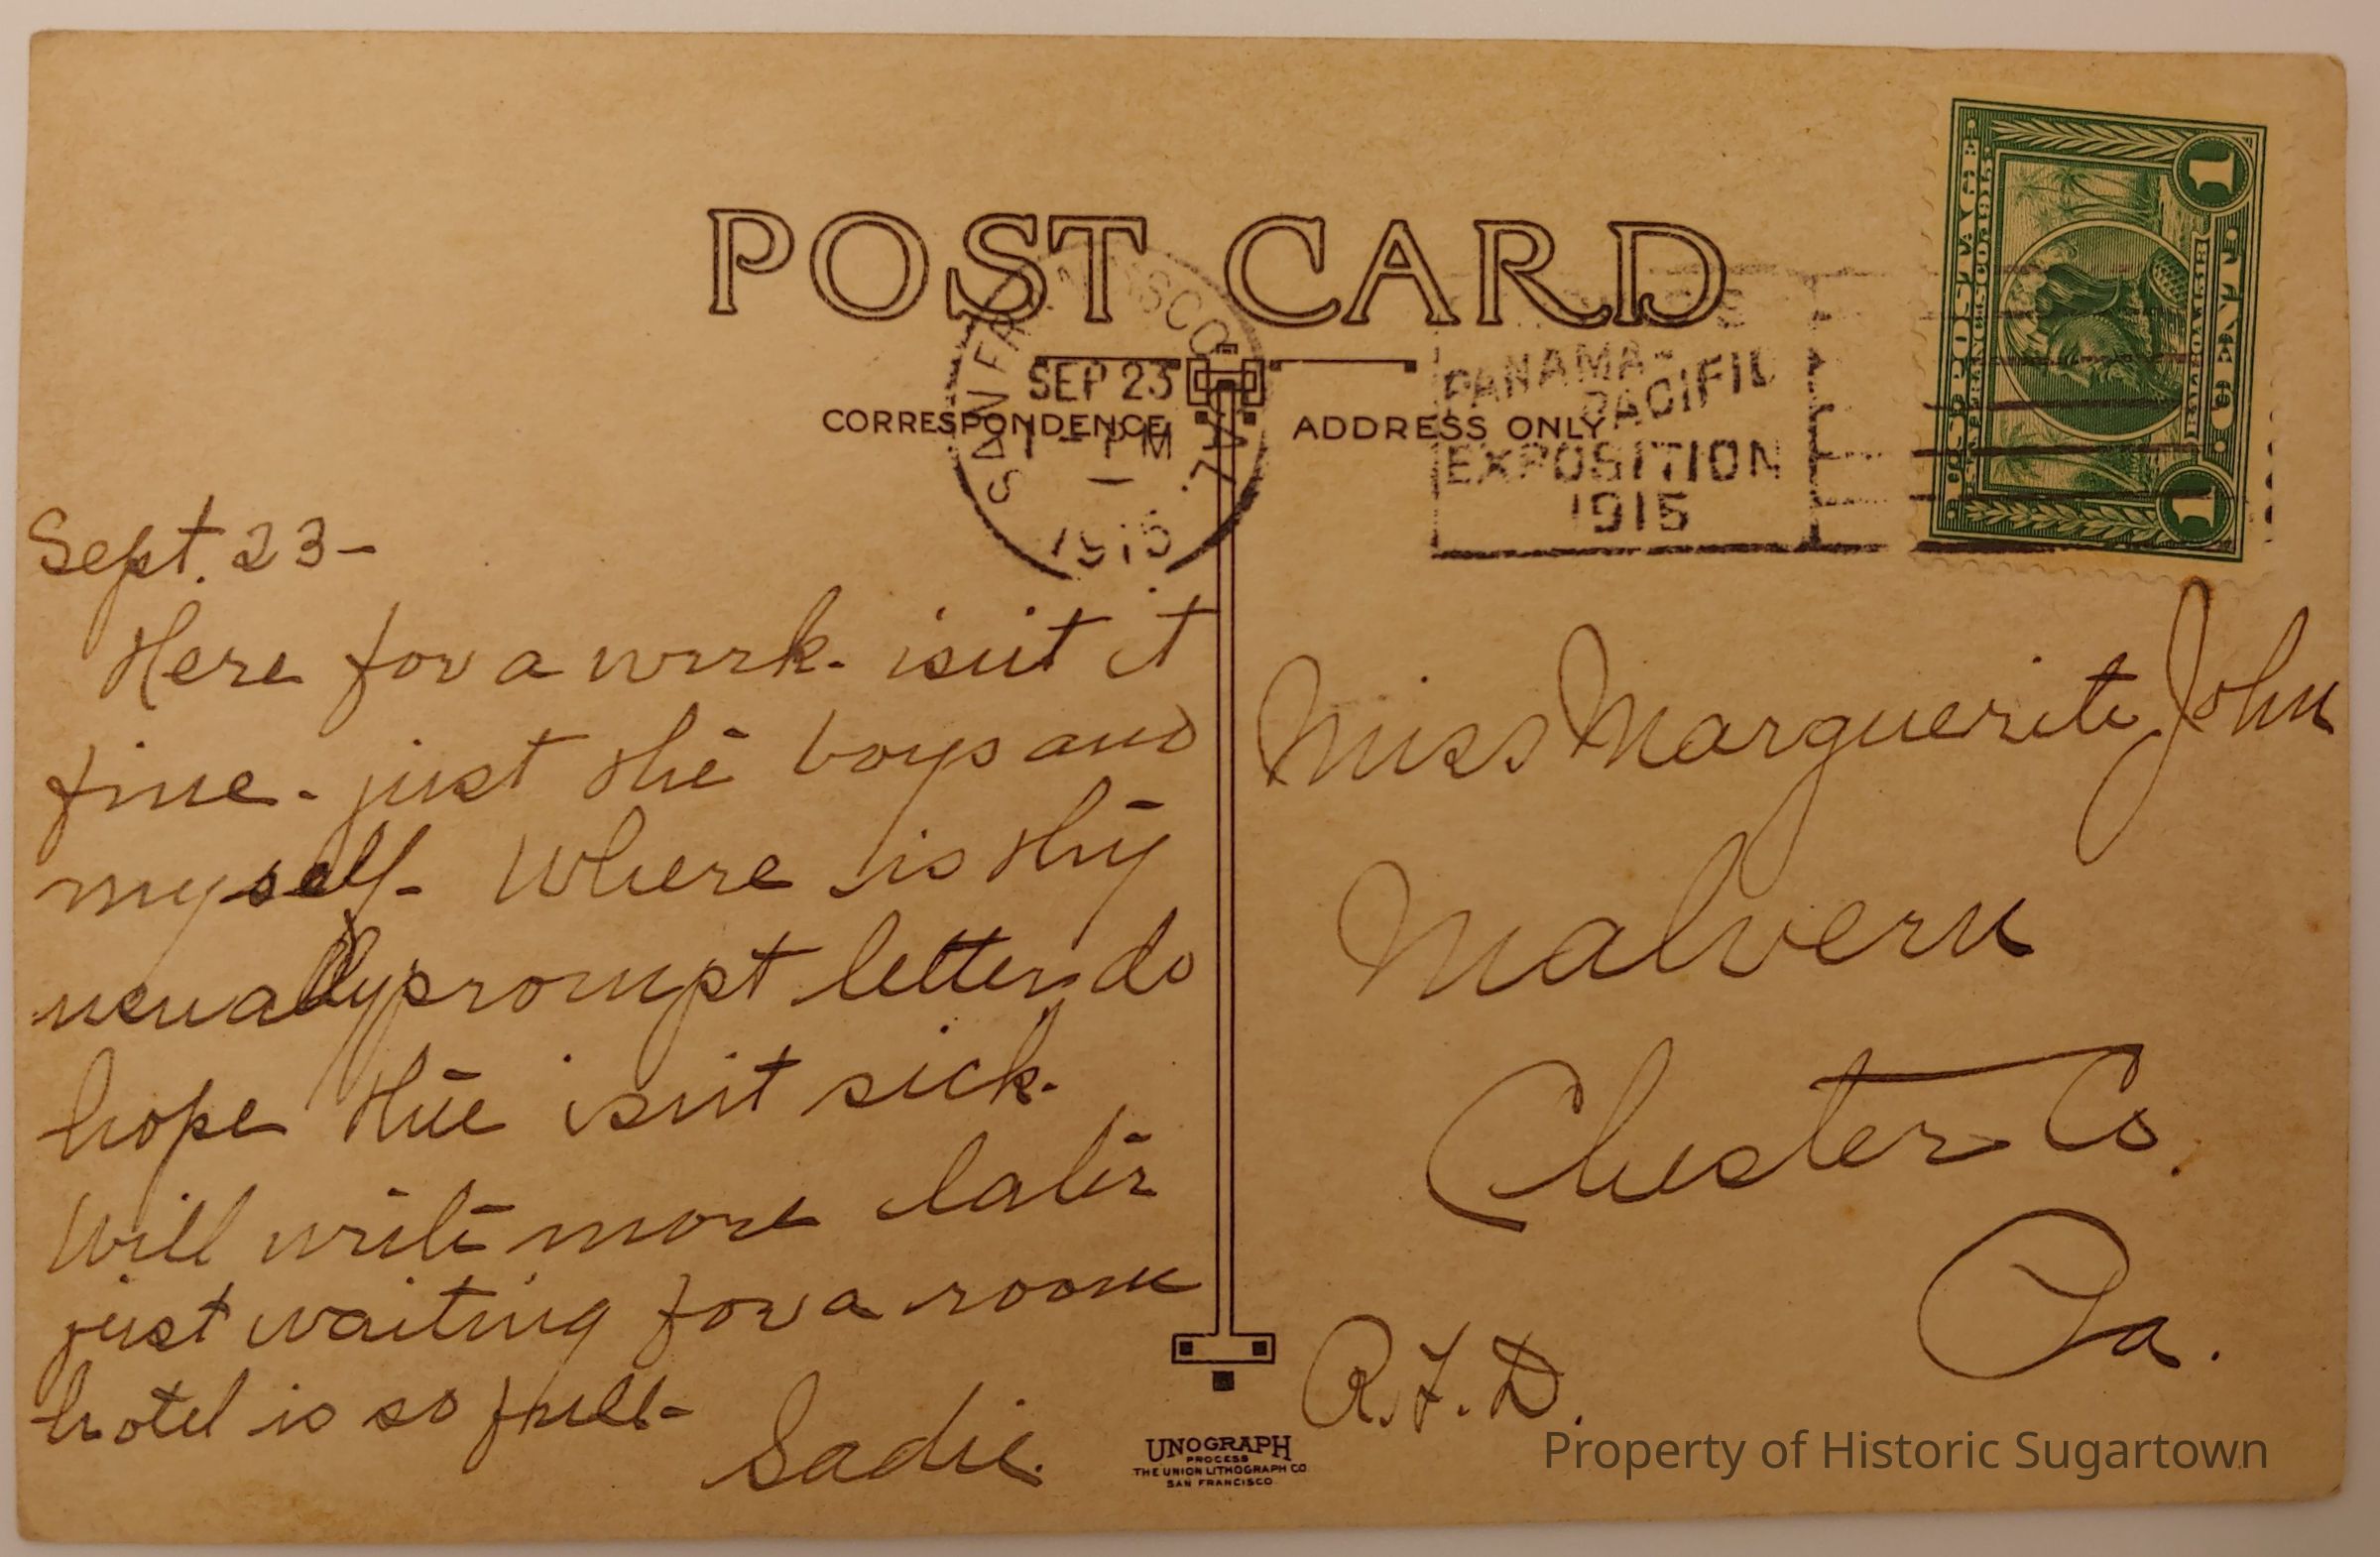 POST CARD
SAN FRANCISCO, CAL.
SEP 23
1 - PM
1915
PANAMA-
PACIFIC
EXPOSITION
1915
U.S. POSTAGE
SAN FRANCISCO 1915
BALBOA 1513
1 CENT 1
CORRESPONDENCE
ADDRESS ONLY
Sept. 23-
Here for a week- isn't it
fine- just the boys and
myself- Where is thy
usually prompt letter, do
hope thee isn't sick-
Will write more later
just waiting for a room
hotel is so full-
Sadie.
Miss Marguerite John
Malvern
Chester Co.
Pa.
R.F.D.
UNOGRAPH
PROCESS
THE UNION LITHOGRAPH CO
SAN FRANCISCO
Property of Historic Sugartown